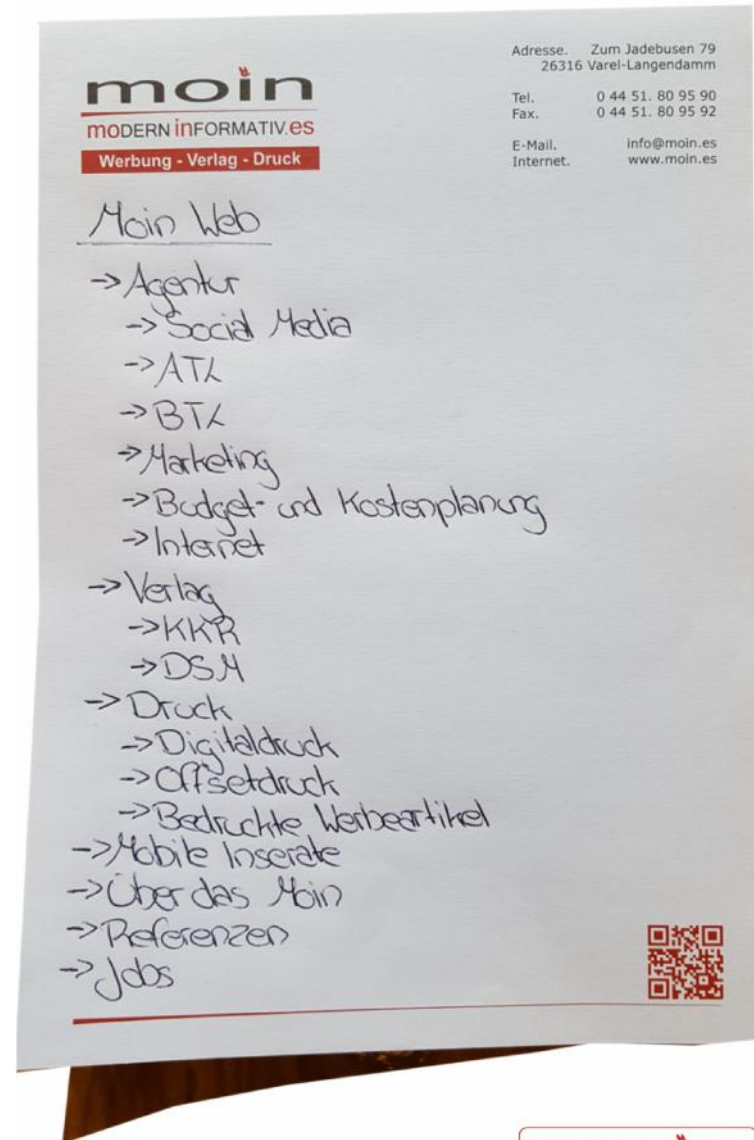 moin
moDERN inFORMATIV.es
Werbung - Verlag - Druck
Adresse. Zum Jadebusen 79
26316 Varel-Langendamm
Tel. 0 44 51. 80 95 90
Fax. 0 44 51. 80 95 92
E-Mail. info@moin.es
Internet. www.moin.es
Moin Web
-> Agentur
-> Social Media
-> ATL
-> BTL
-> Marketing
-> Budget- und Kostenplanung
-> Internet
-> Verlag
-> KKR
-> DSM
-> Druck
-> Digitaldruck
-> Offsetdruck
-> Bedruckte Werbeartikel
-> Mobile Inserate
-> Über das Moin
-> Referenzen
-> Jobs